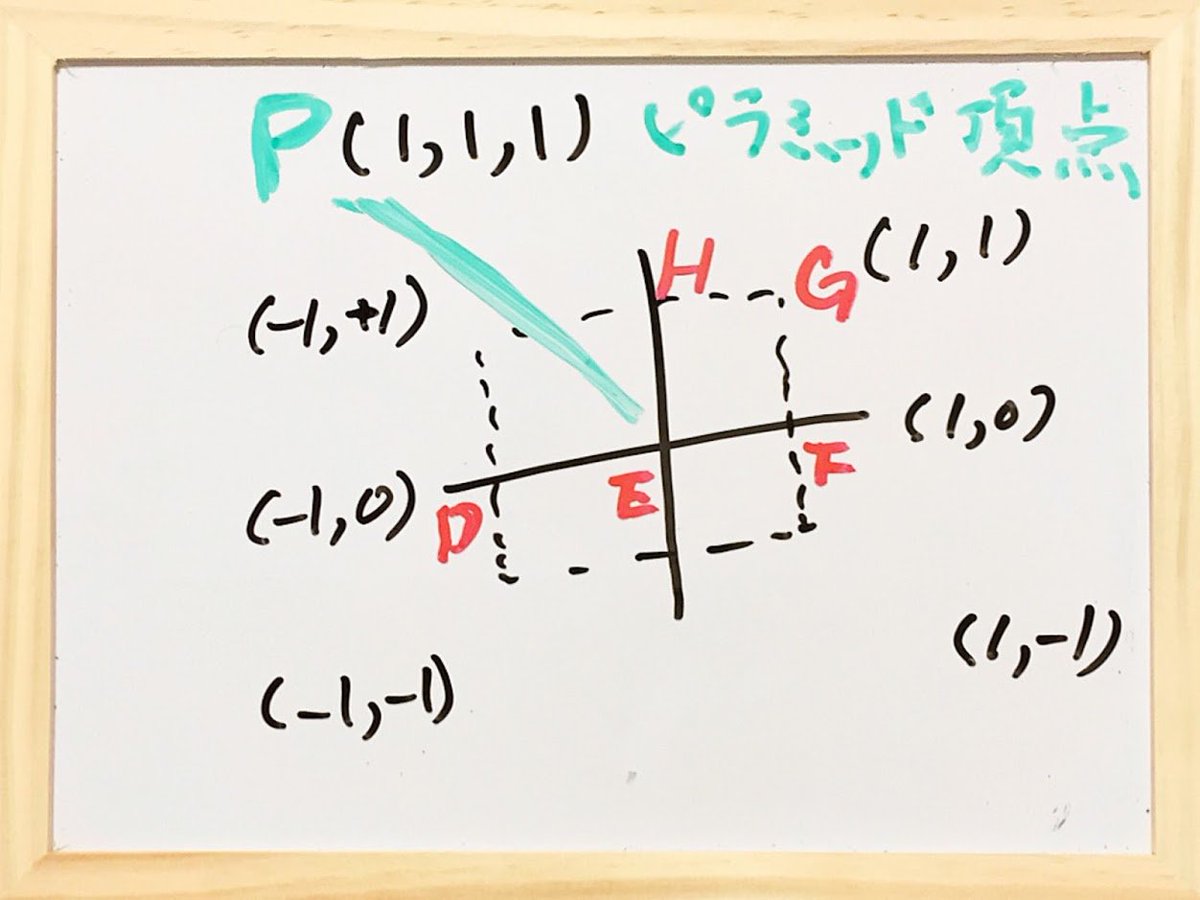 P(1,1,1) ピラミッド頂点
H G (1,1)
(-1,+1)
(1,0)
E F
(-1,0) D
(1,-1)
(-1,-1)